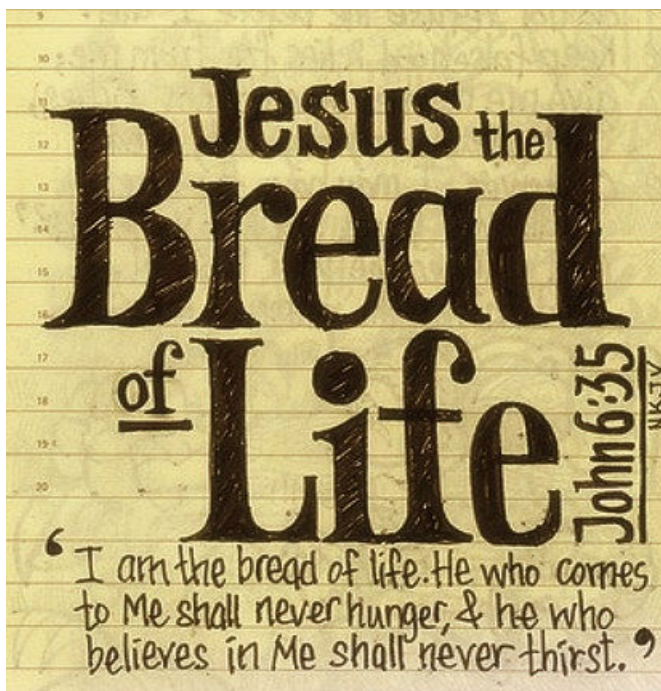 9
10
11
12
13
14
15
16
17
18
19
20
Jesus the
Bread
of Life
John 6:35
NKJV
‘ I am the bread of life. He who comes
to Me shall never hunger, & he who
believes in Me shall never thirst. ’